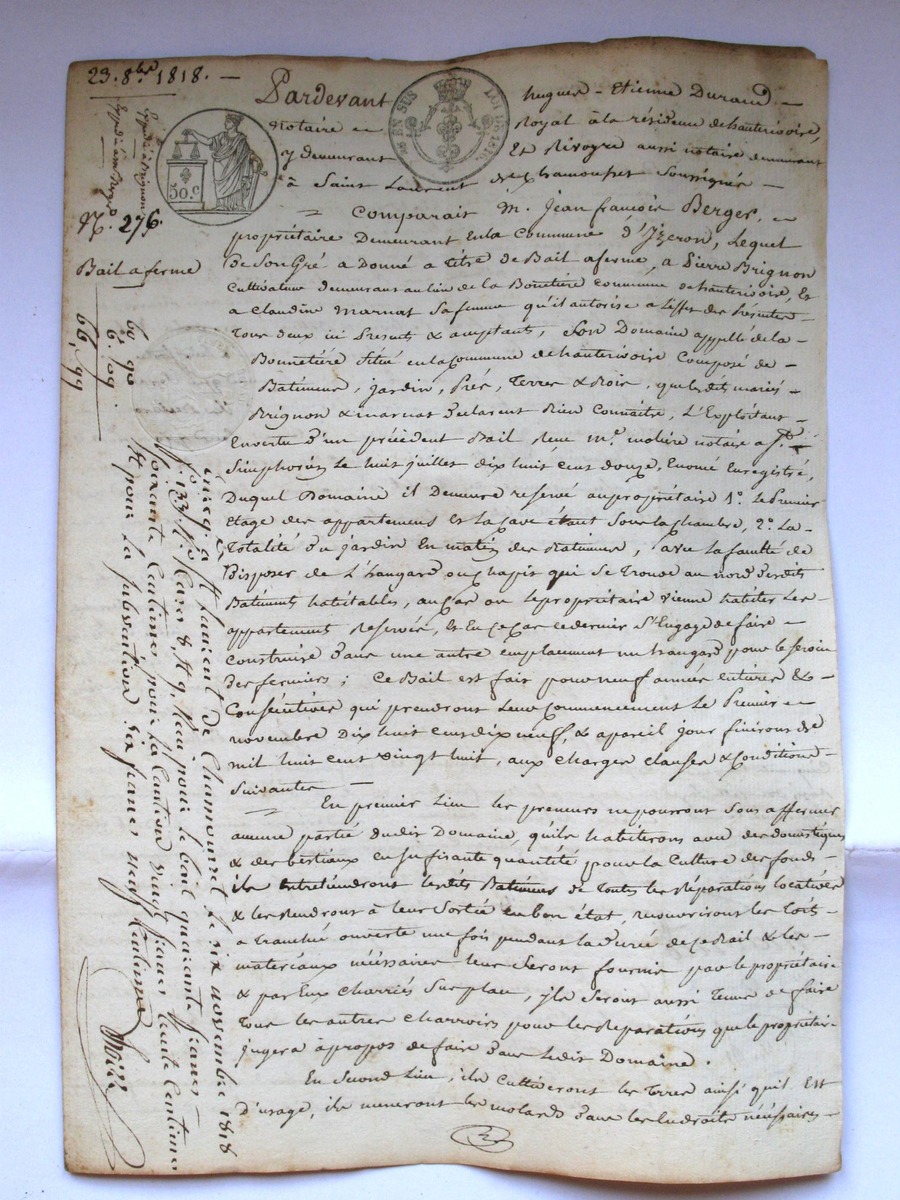 23. 8bre 1818. —
Pardevant hugues - Etienne Durand —
Notaire Royal à la résidence de hauterivoire,
y demeurant Et Rivoyre aussi notaire demeurant
à Saint Laurent de Chamousset Soussignés —
50.c
EN SUS
LOI DE 1816.
Expédié à Brignon
N.o 276.
Bail a ferme
60, 90
6, 09
66, 99
Comparait M. Jean françois Berger,
propriétaire Demeurant en la Commune d'Izeron, Lequel
de Son Gré a Donné a titre de Bail aferme, a Pierre Brignon
Cultivateur demeurant au lieu de la Bonnetiére commune de hauterivoire, Et
a Claudine marnat Sa femme qu'il autorise a L'effet des présentes
Tous deux ici présents & acceptants, Son Domaine appellé de la
Bonnetiére Situé en la Commune de hauterivoire Composé de
Batiments, jardin, Prés, Terres & Bois, que lesdits mariés
Brignon & marnat Déclarent Bien Connaître, L'Exploitant
En vertu D'un précédent Bail, Reçu M.e moliére notaire a St
Simphorien Le huit juillet dix huit cent douze, Enoncé Enregistré,
Duquel Domaine il Demeure reservé au propriétaire 1.o Le Premier
Etage des appartemens Et la Cave étant Sous la Chambre, 2.o La
Totalité du jardin En matin des Batimens, avec la faculté de
Disposer de L'hangard ou Chapit qui Se trouve au nord desdits
Batiments habitables, au Cas ou le propriétaire vienne habiter Les
appartements Reservés, Et En ce Cas ce dernier S'Engage de faire —
Construire dans une autre emplacement un hangard pour le Service
des fermiers; Ce Bail est fait pour neuf années entières & —
Consécutives qui prendront Leur Commencement Le Premier
novembre Dix huit Cent dix neuf, & apareil jour finiront de
mil huit cent vingt huit, aux Charges clauses & Conditions
Suivantes —
En premier Lieu les preneurs ne pourront Sous affermer
aucune partie dudit Domaine, qu'ils habiteront avec des domestiques
& des bestiaux en sufisante quantité pour la Culture des fonds —
ils Entretiendront lesdits Batimens de Toutes les Réparations locatives
& les Rendront à leur Sortie en bon état, recouvriront les Toits
a tranchée ouverte une fois pendant la Durée de ce Bail & les —
matériaux nécéssaires leur Seront fournis par le propriétaire
& par Eux Charriés Sur place, ils Seront aussi Tenus de faire
Tous les autres Charrois pour les Réparations que le propriétaire
jugera à propos de faire dans ledit Domaine.
En Second Lieu, ils Cultiveront les Terres ainsi qu'il Est
D'usage, ils meneront les molards dans les Endroits nécéssaires —
Enreg. a St Laurent de Chamousset le six novembre 1818
f.o 133 R.o Cases 8, & 9, Reçu pour le bail quarante francs
soixante Centimes, pour la Caution vingt francs trente Centimes
& pour la subvention six francs neuf Centimes